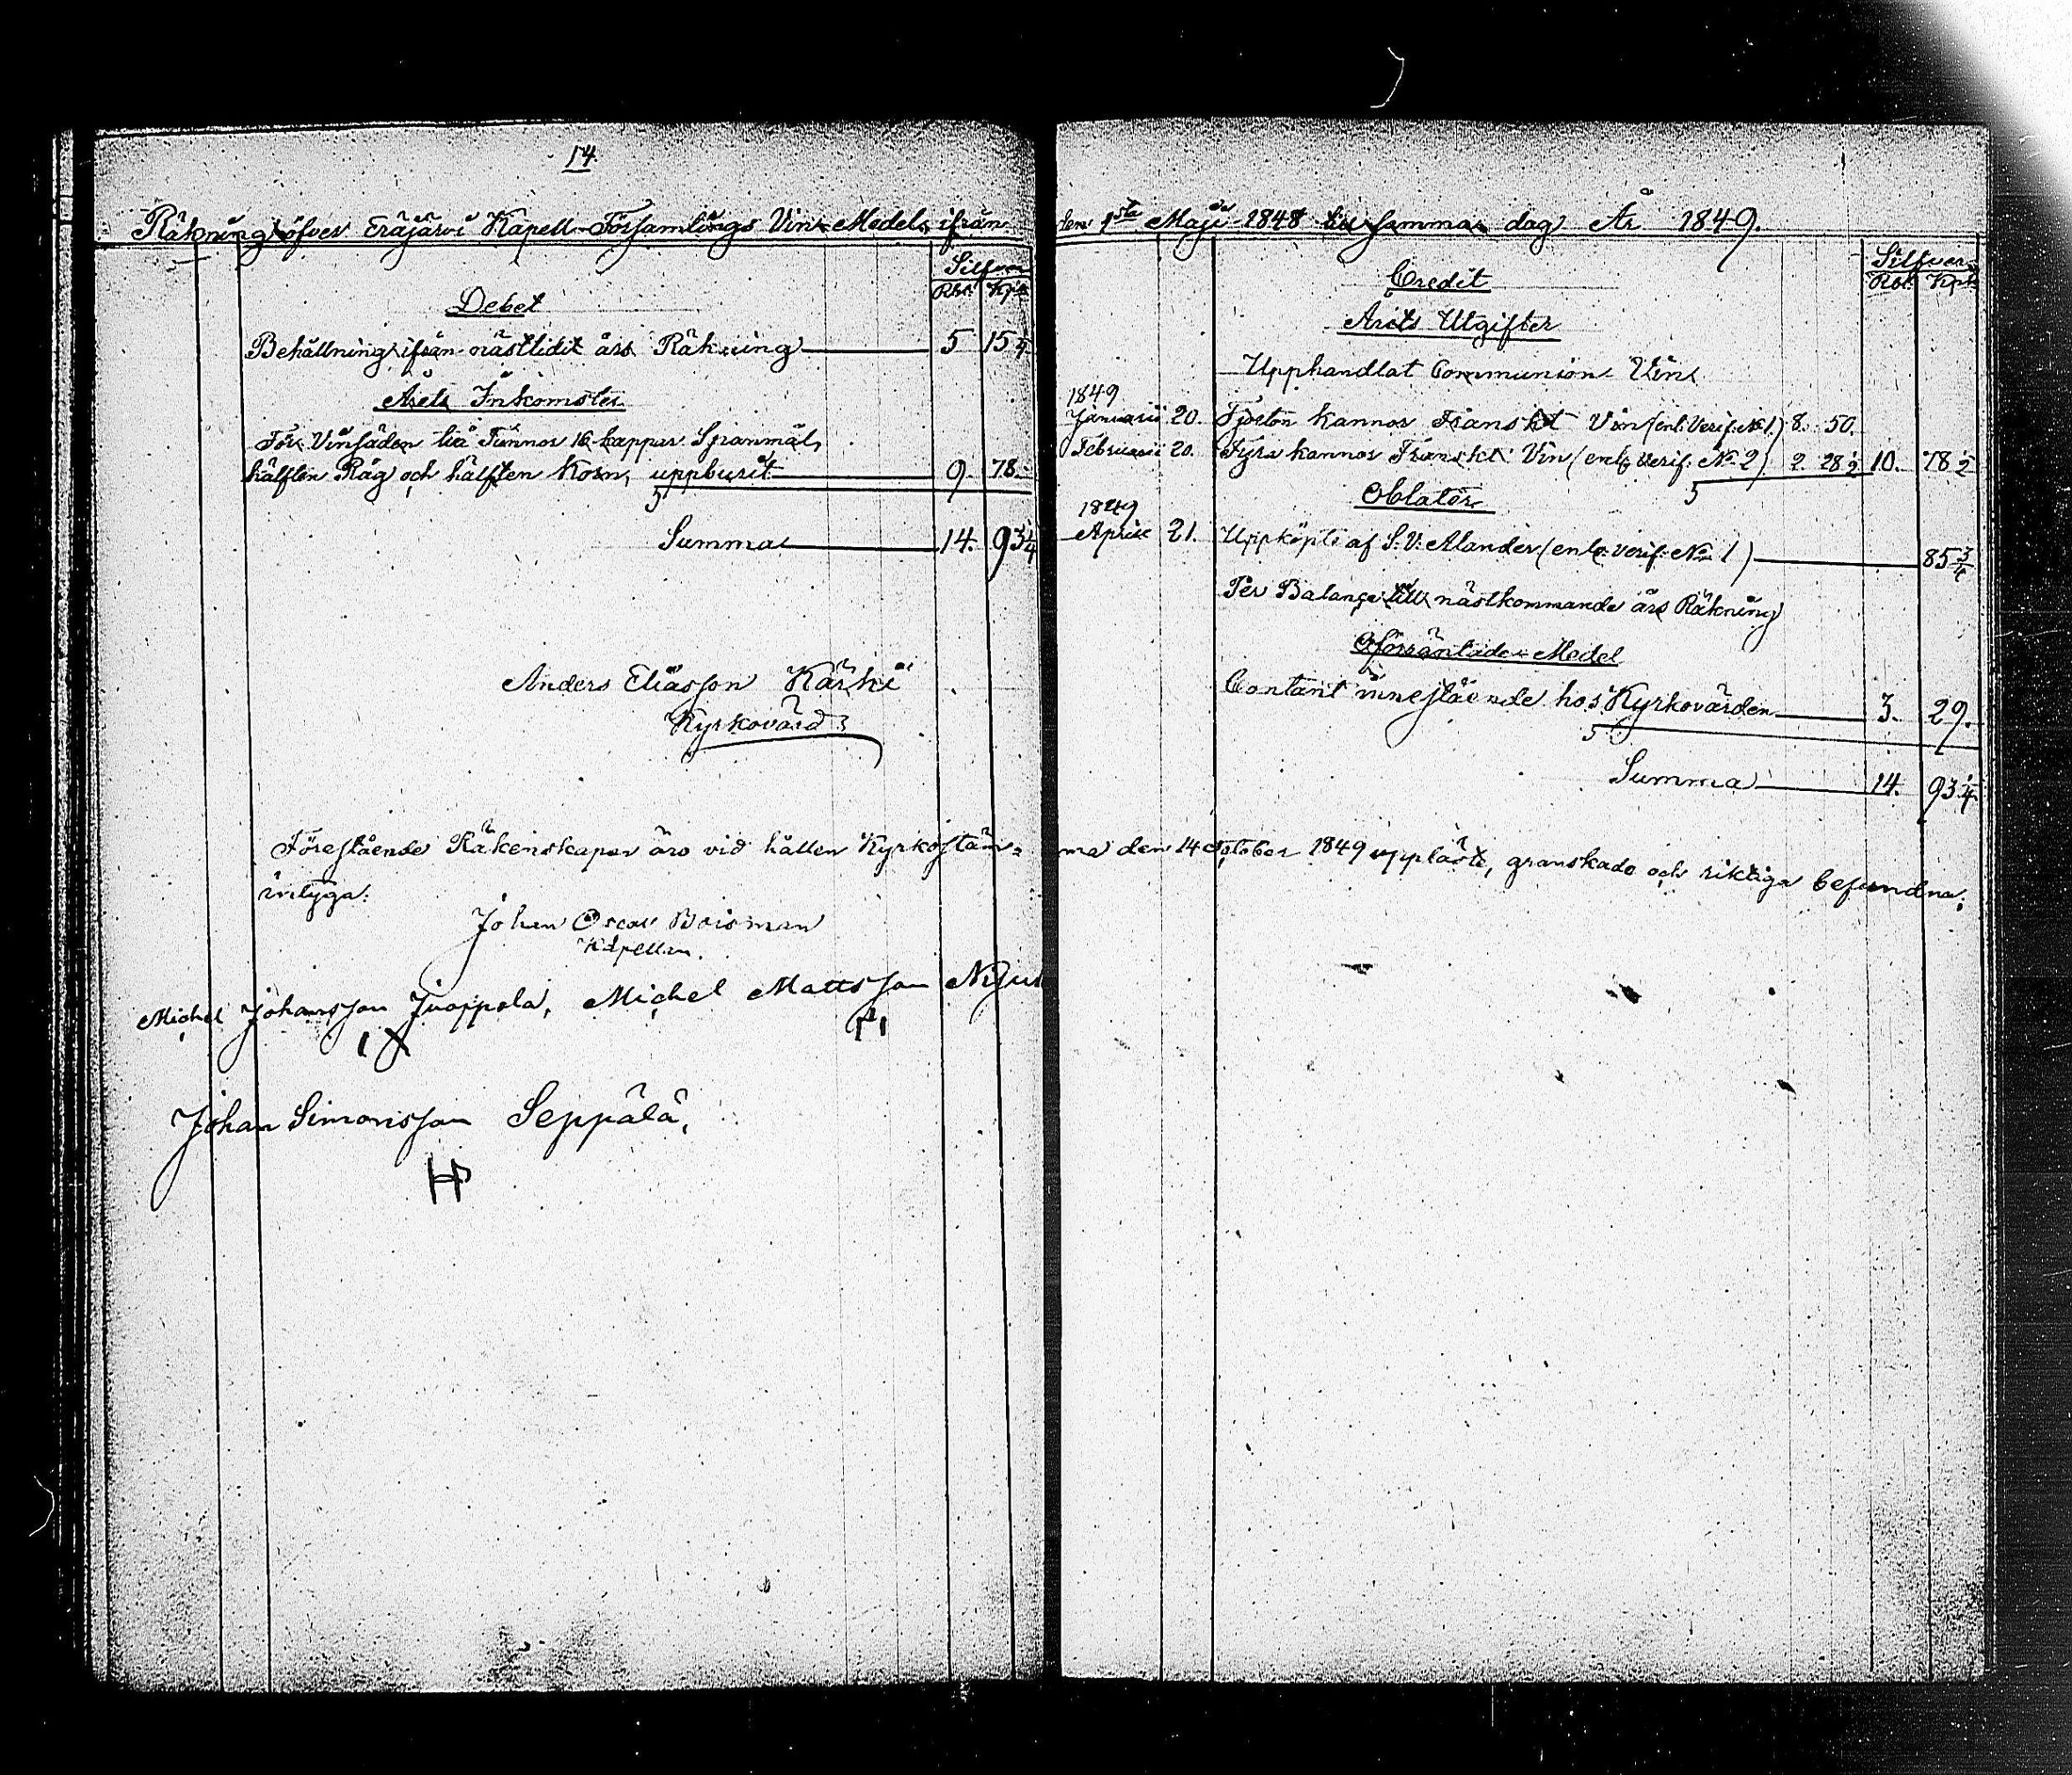 14.
Räkning öfver Eräjärvi Kapell Församlings Vin Medel, ifrån
Silfver
Rbl. Kpk
Debet
Behållning ifrån nästlidit års Räkning 5 15 1/4
Årets Inkomster
För Vinsäden två Tunnor 16 kappar Spanmål,
hälften Råg och hälften Korn, uppburit 9. 78.
Summa 14. 93 1/4
Anders Eliasson Kärki
Kyrkovärd
Förestående Räkenskaper äro vid hållen Kyrkostäm-
intyga:
Johan Oscar Boisman
Kapellan.
Michel Johansson Juoppola, Michel Mattsson
Johan Simonsson Seppälä,
den 1sta Maji 1848 till samma dag År 1849.
Silfver
Rbl. Kpk
Credit
Årets Utgifter
Upphandlat Communion Vin
1849
Januarii 20. Fjorton kannor Franskt Vin (enl: Verif: No 1.) 8. 50.
Februarii 20. Fyra kannor Franskt Vin (enl: Verif: No 2) 2. 28 1/2 10. 78 1/2
Oblater
1849
April 21. Uppköpte af S. V. Alander (enl: verif: No 1) 85 3/4
Per Balance till nästkommande års Räkning
Oförräntade Medel
Contant innestående hos Kyrkovärden 3. 29.
Summa 14. 93 1/4
ma den 14 October 1849 uppläste, granskade och riktiga befundna;